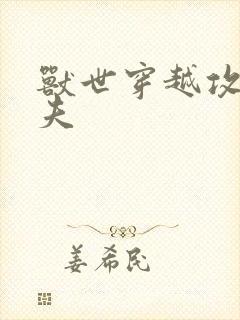 獸世穿越攻
夫
姜希民